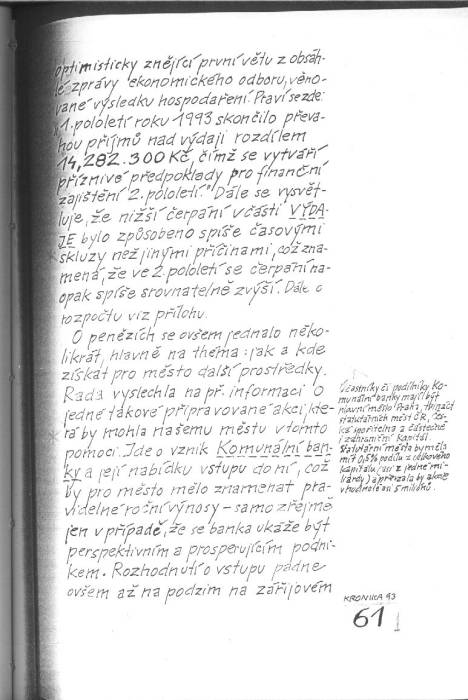 optimisticky znějící první větu z obsáh-
lé zprávy ekonomického odboru, věno-
vané výsledku hospodaření. Praví se zde:
"1. pololetí roku 1993 skončilo převa-
hou příjmů nad výdaji rozdílem
14,282.300 Kč, čímž se vytváří
příznivé předpoklady pro finanční
zajištění 2. pololetí." Dále se vysvět-
luje, že nižší čerpání v části VÝDA-
JE bylo způsobeno spíše časovými
skluzy než jinými příčinami, což zna-
mená, že ve 2. pololetí se čerpání na-
opak spíše srovnatelně zvýší. Dále o
rozpočtu viz přílohu.
O penězích se ovšem jednalo něko-
likrát, hlavně na thema: jak a kde
získat pro město další prostředky.
Rada vyslechla na př. informaci o
jedné takové připravované akci, kte-
rá by mohla našemu městu v tomto
pomoci. Jde o vznik Komunální ban-
ky a její nabídku vstupu do ní, což
by pro město mělo znamenat pra-
videlné roční výnosy - samozřejmě
jen v případě, že se banka ukáže být
perspektivním a prosperujícím podni-
kem. Rozhodnutí o vstupu padne
ovšem až na podzim na zářijovém
Účastníky či podílníky Ko-
munální banky mají být
hlavní město Praha, třináct
statutárních měst ČR, Čes-
ká spořitelna a částečně
i zahraniční kapitál.
Statutární města by měla
mít 0,5% podílu z celkového
kapitálu (asi z jedné mi-
liardy) a převzala by akcie
v hodnotě asi 5 miliónů.
KRONIKA 93
61